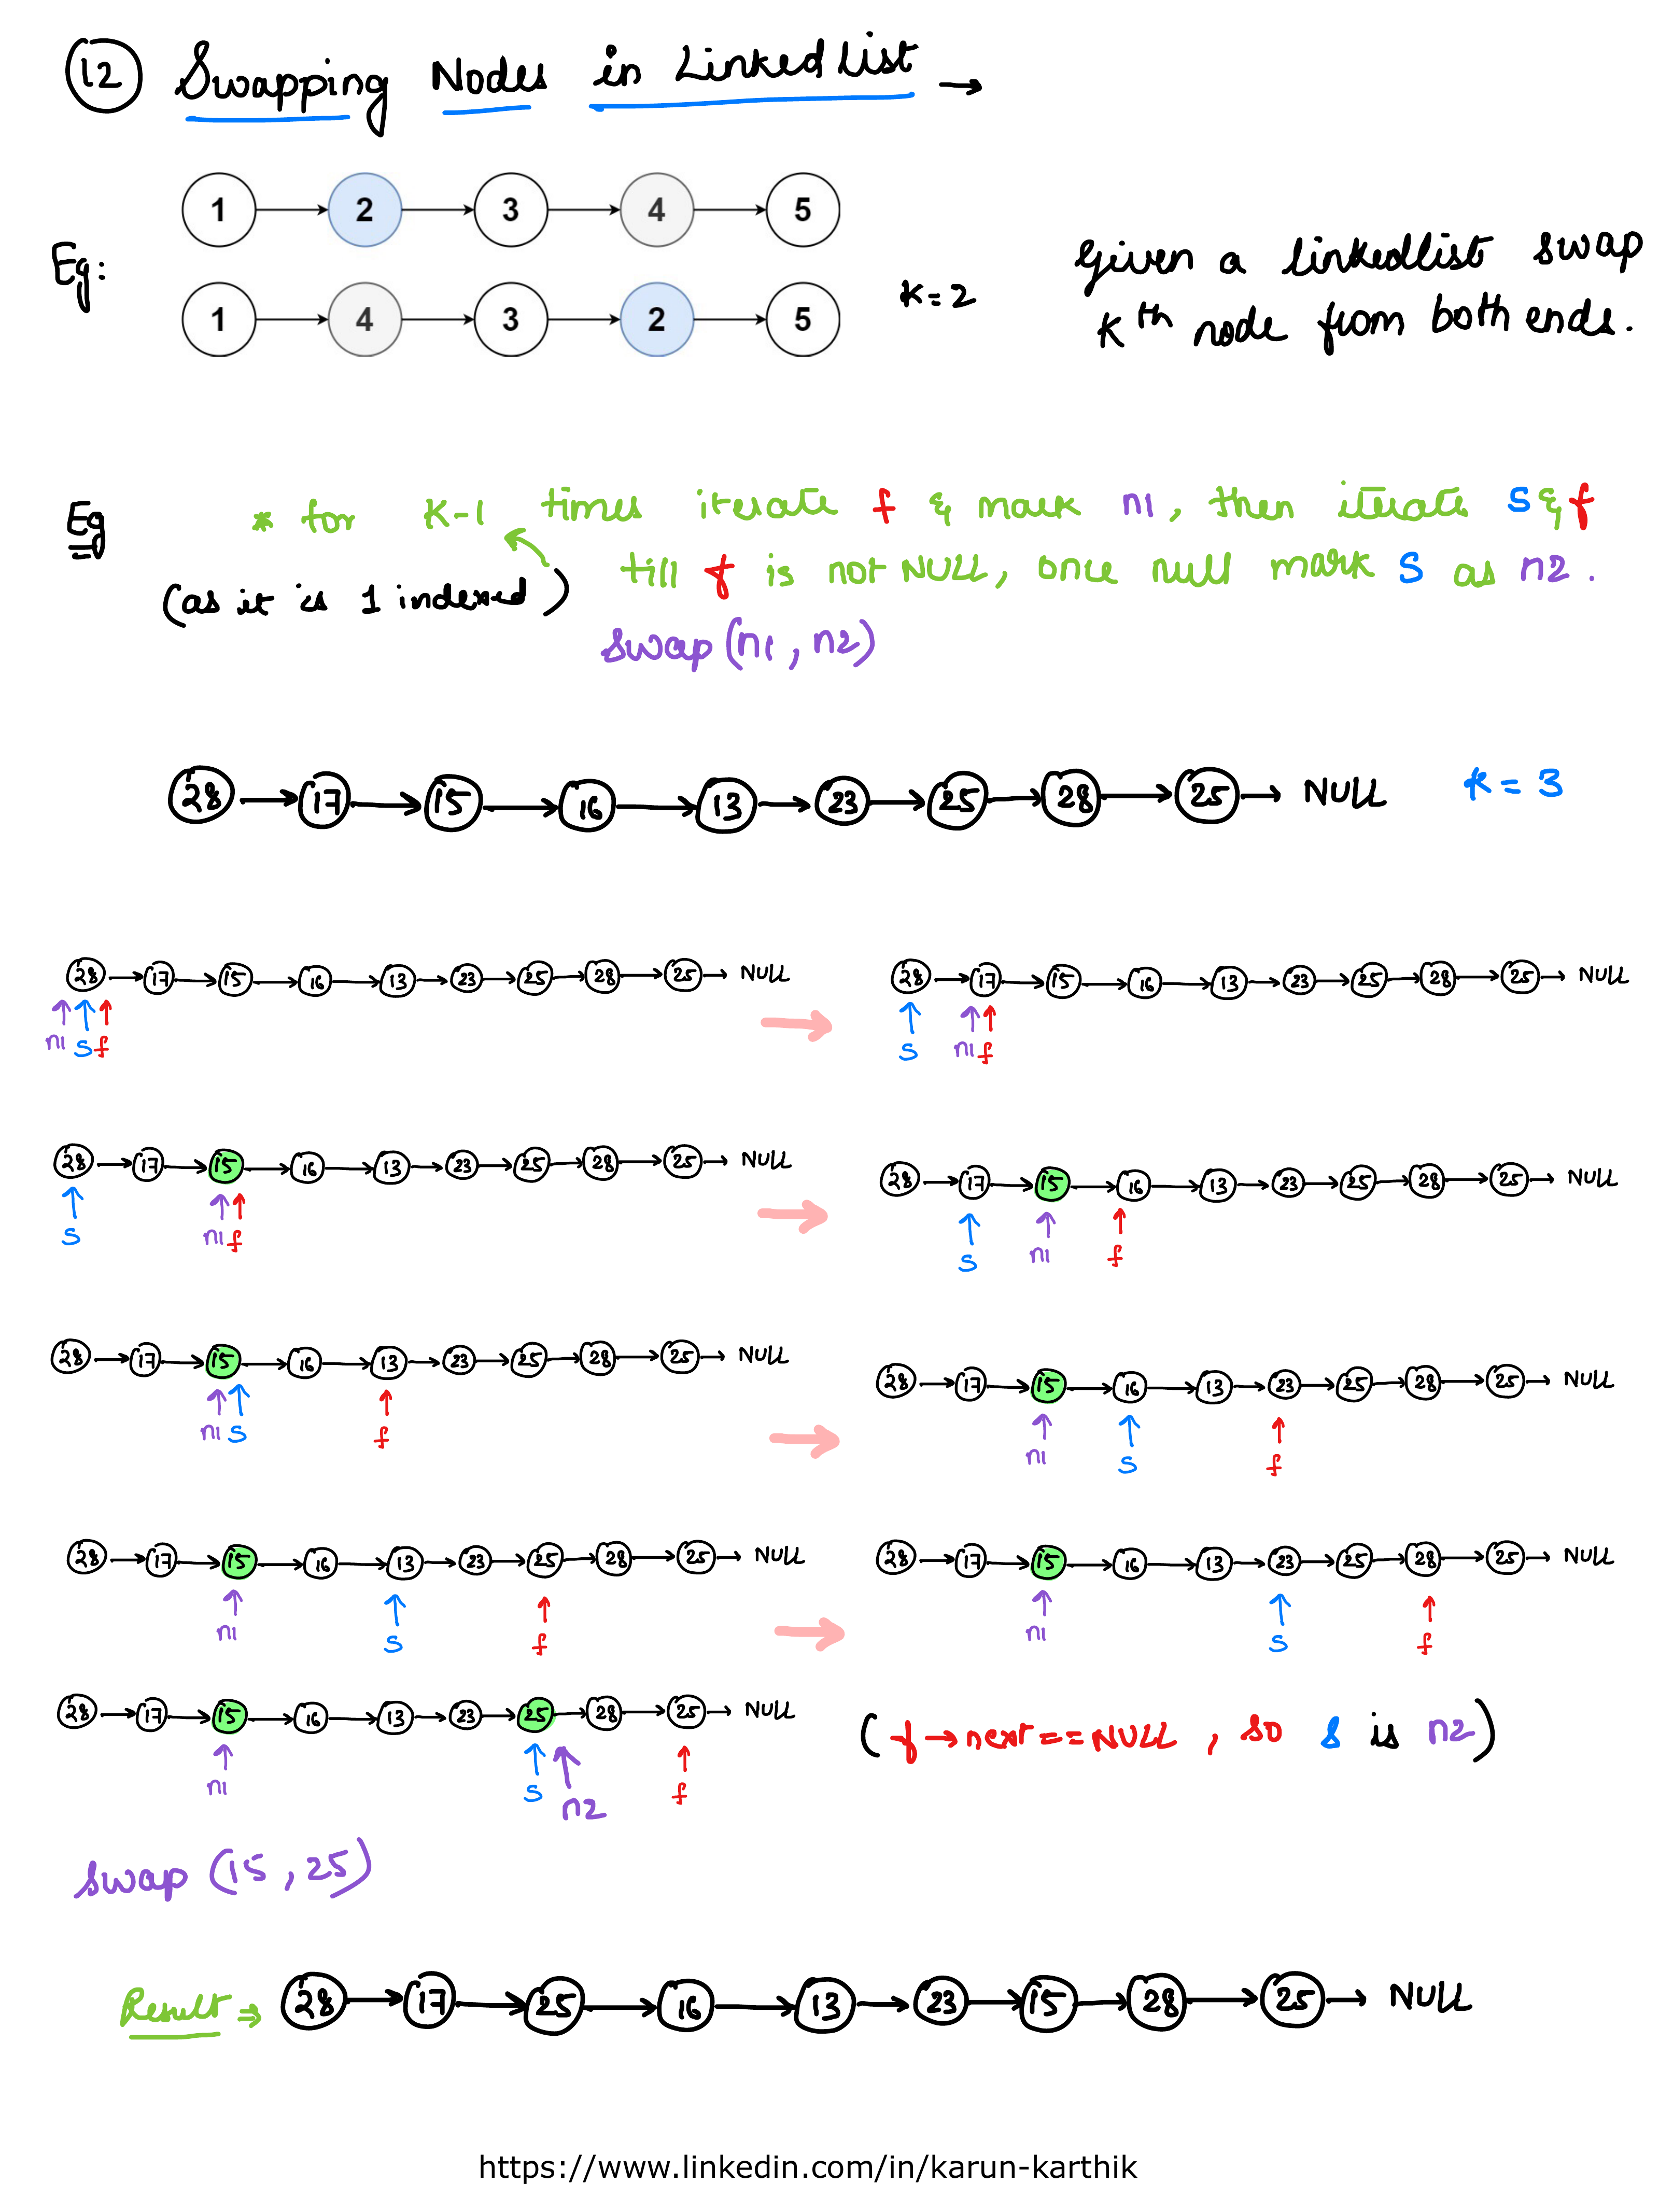 12 Swapping Nodes in Linked List →
1 → 2 → 3 → 4 → 5
Eg:
1 → 4 → 3 → 2 → 5
k = 2
Given a linkedlist swap
kth node from both ends.
Eg * for K-1 times iterate f & mark n1, then iterate S & f
(as it is 1 indexed) till f is not NULL, once null mark S as n2.
swap (n1, n2)
28 → 17 → 15 → 16 → 13 → 23 → 25 → 28 → 25 → NULL k = 3
28 → 17 → 15 → 16 → 13 → 23 → 25 → 28 → 25 → NULL
n1 s f
28 → 17 → 15 → 16 → 13 → 23 → 25 → 28 → 25 → NULL
s n1 f
28 → 17 → 15 → 16 → 13 → 23 → 25 → 28 → 25 → NULL
s n1 f
28 → 17 → 15 → 16 → 13 → 23 → 25 → 28 → 25 → NULL
s n1 f
28 → 17 → 15 → 16 → 13 → 23 → 25 → 28 → 25 → NULL
n1 s f
28 → 17 → 15 → 16 → 13 → 23 → 25 → 28 → 25 → NULL
n1 s f
28 → 17 → 15 → 16 → 13 → 23 → 25 → 28 → 25 → NULL
n1 s f
28 → 17 → 15 → 16 → 13 → 23 → 25 → 28 → 25 → NULL
n1 s f
28 → 17 → 15 → 16 → 13 → 23 → 25 → 28 → 25 → NULL
n1 s n2 f
(f → next == NULL, so s is n2)
swap (15, 25)
Result ⇒ 28 → 17 → 25 → 16 → 13 → 23 → 15 → 28 → 25 → NULL
https://www.linkedin.com/in/karun-karthik